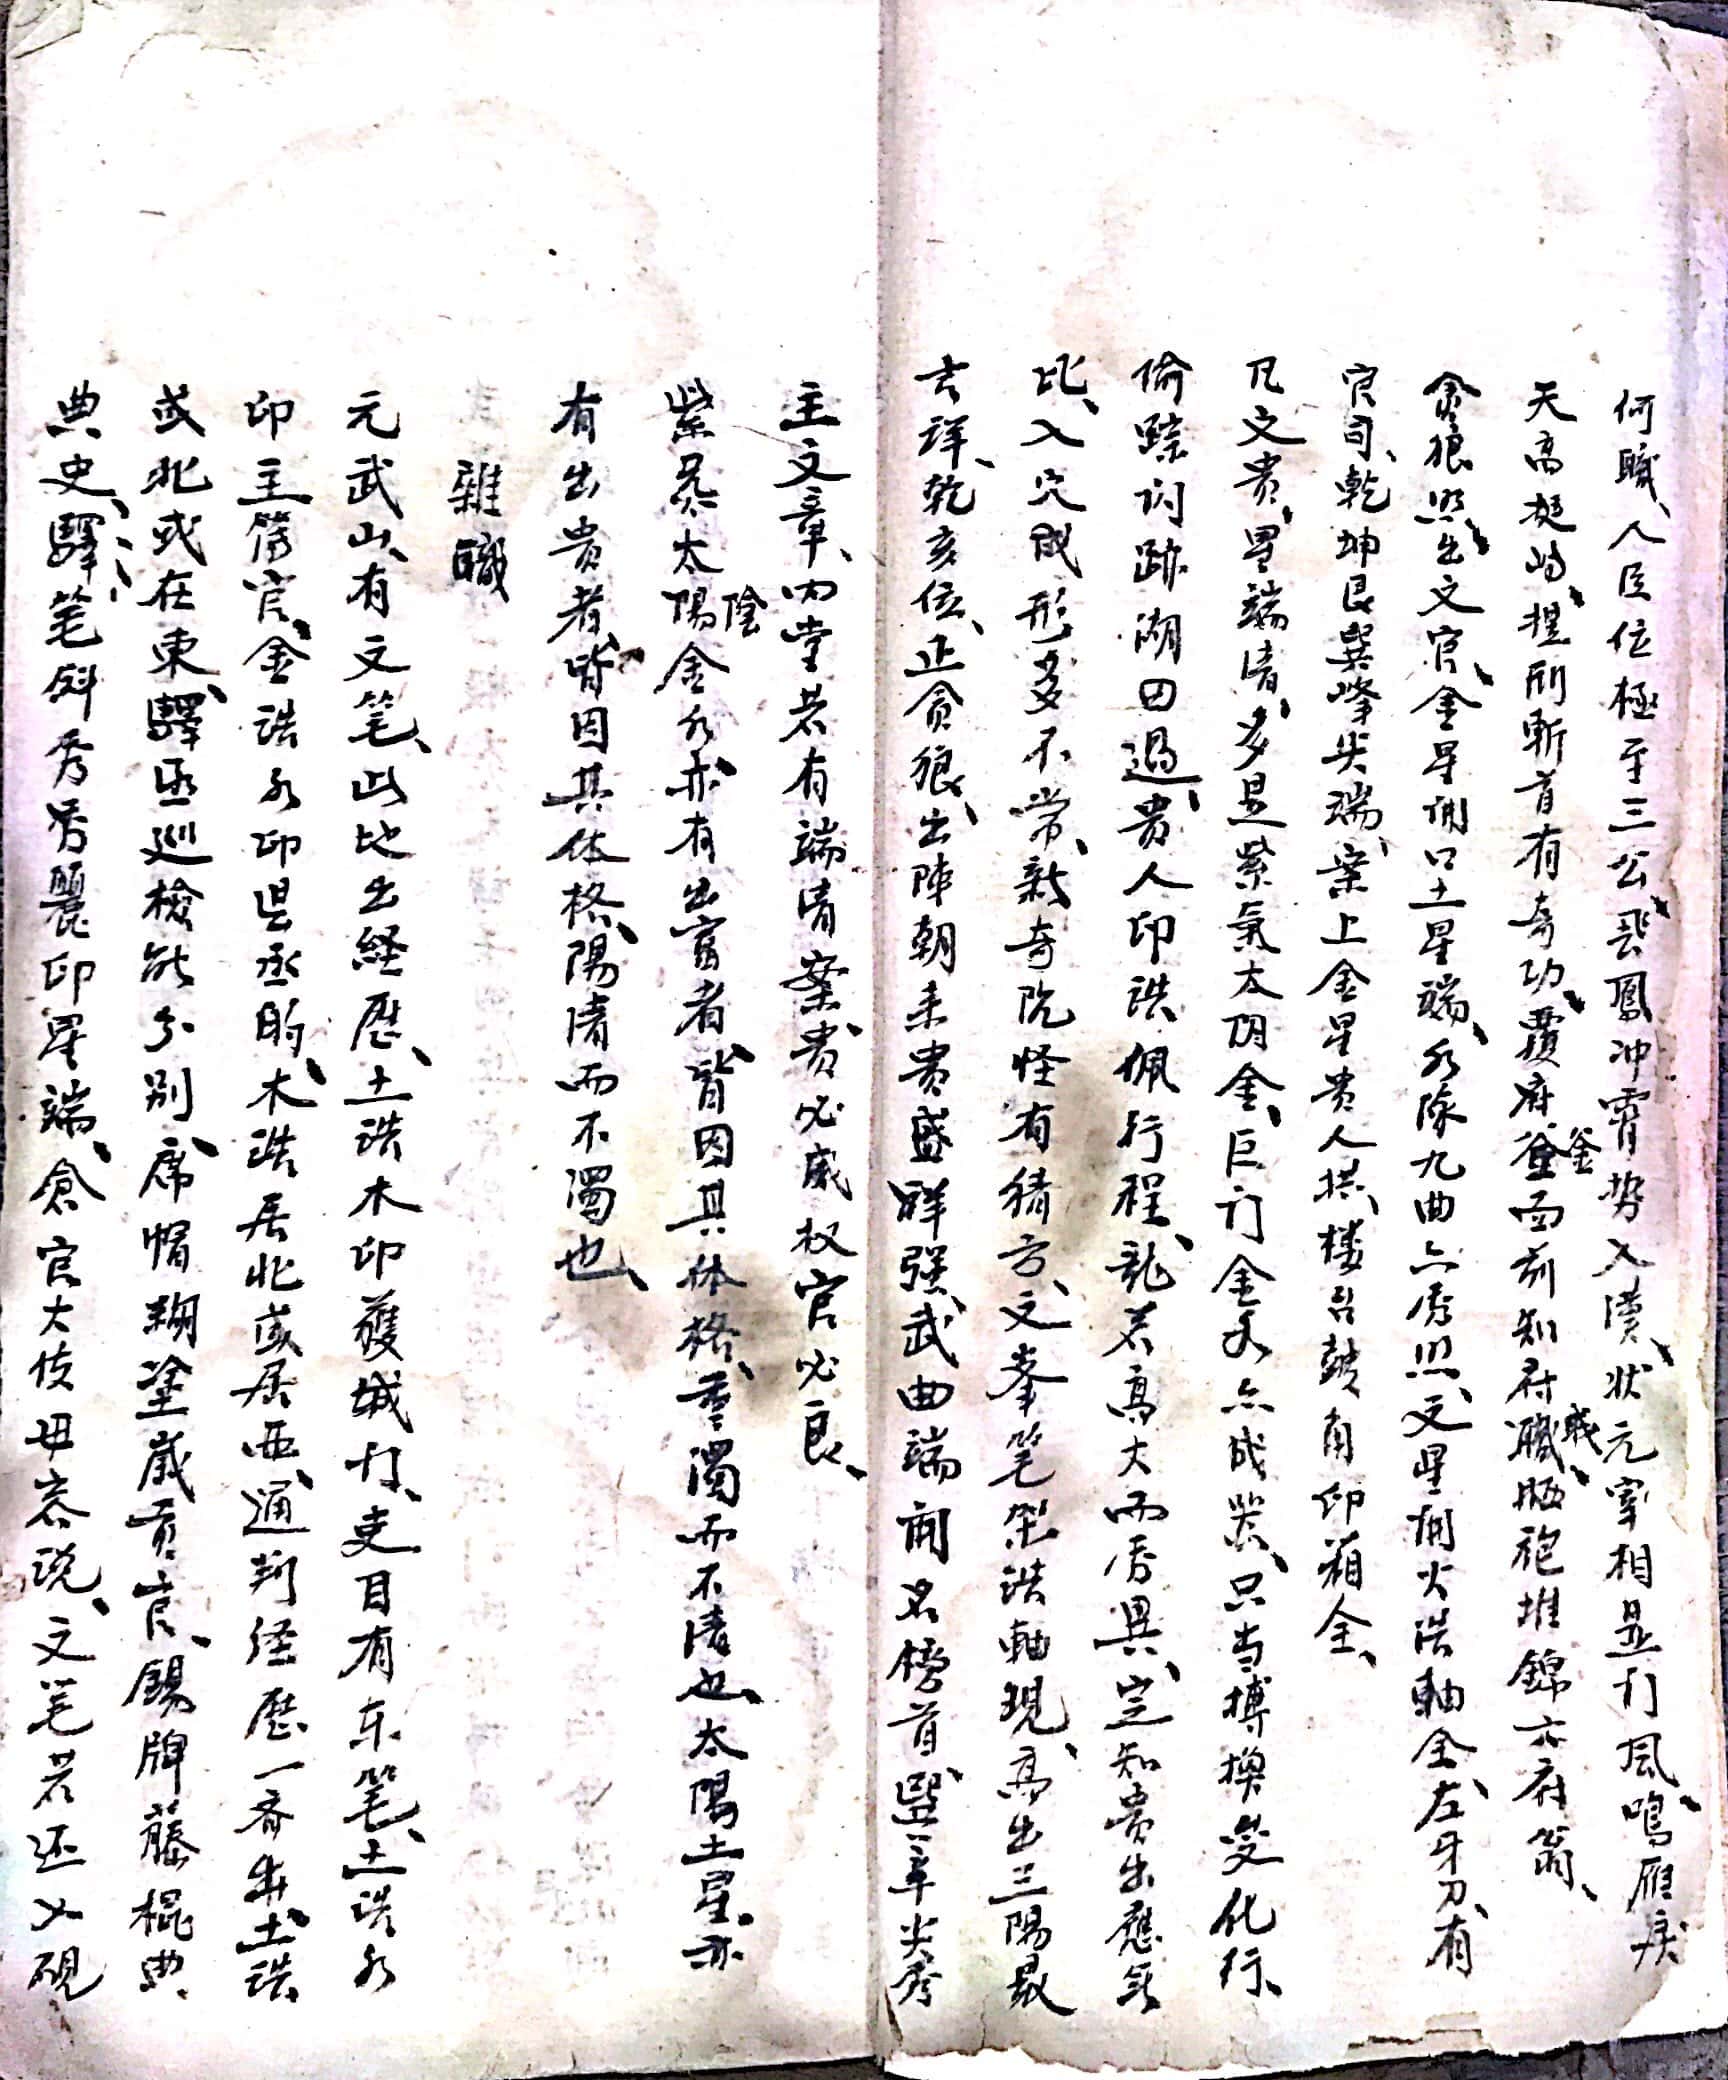 何職、人臣位極至三公、飛鳳冲霄势入漢、状元宰相是門風、鳴雁疾
天高挺峙、提刑斬首有奇功、覆府釜面前知府職、晒袍堆錦六府翁、
貪狼照出文官、金星開口土星端、水隊九曲六秀照、文星開火誥軸全、左牙刀、有
官司、乾坤艮巽峰尖端、案上金星貴人拱、楼台鼓角印箱全、
凡文貴、星端清、多是紫氣太阴金、巨门金水六成器、只当摶换变化行、
偷踪闪跡湖田過、貴人印誥佩行程、龍若高大而秀異、定知貴出應無
比、入穴成形多不常、新奇阮怪有猜方、文峯笔架誥軸現、高出三陽最
吉祥、乾亥位、正貪狼、出陣朝来貴盛祥强、武曲端開名榜首、巽辛尖秀
主文章、内堂若有端清案、貴必威权官必良、
紫炁太陽陰金水亦有出富者、皆因其体格重濁而不清也、太陽土星、亦
有出貴者、皆因其体格陽清而不濁也、
雜職
元武山、有文笔、此地出経歷、土誥木印護城门、吏目有东笔、土誥水
印主簿官、金誥水印县丞的、木誥居北或居西、通判经歷一齐出、土誥
或北或在東、驛丞巡檢能分别、席帽糊塗歲貢官、錫牌藤棍典
典史、驛、笔斜秀秀麗印星端、倉官大使毋容説、文笔若还火硯